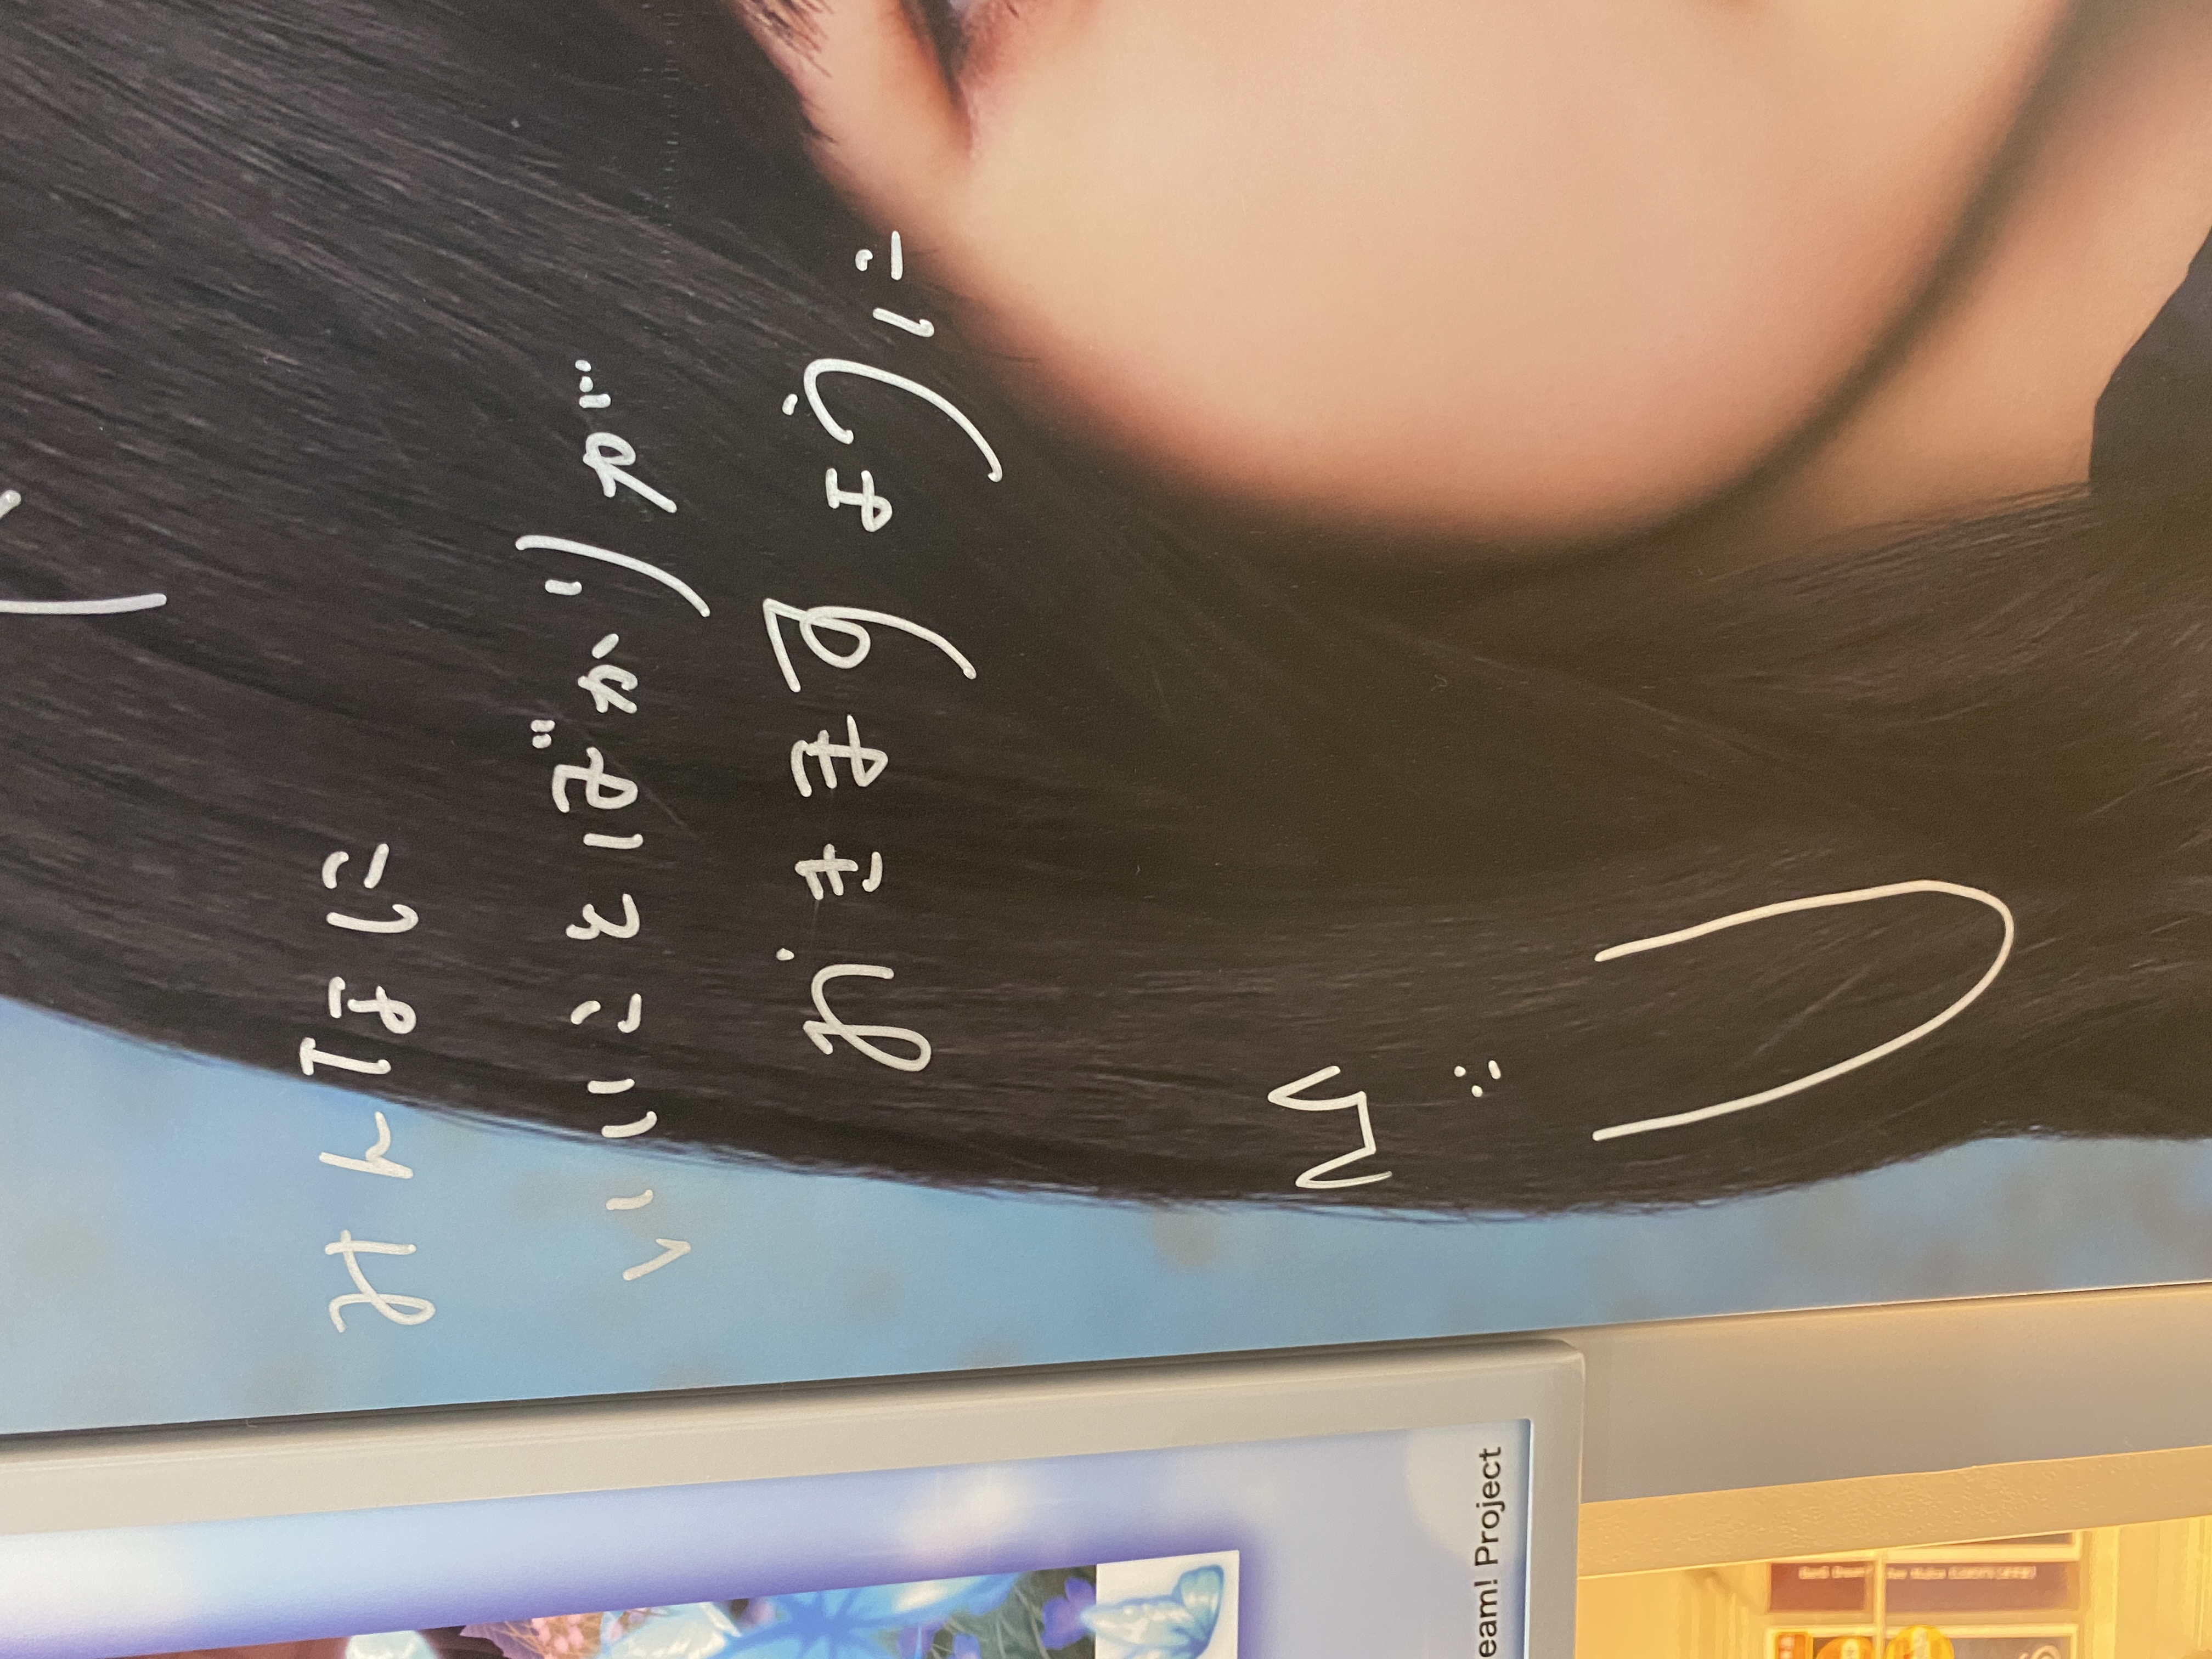 みんなに
いいことばかりが
おきますように
eam! Project